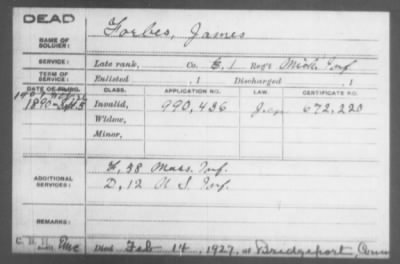 DEAD
NAME OF SOLDIER: Forbes, James
SERVICE: Late rank, Co. G, 1 Reg't Mich. Inf.
TERM OF SERVICE: Enlisted , 1 Discharged , 1
DATE OF FILING. CLASS. APPLICATION NO. LAW. CERTIFICATE NO.
1890 Sept. 5 Invalid, 990,436 672,220
Widow,
Minor,
ADDITIONAL SERVICES: F, 38 Mass. Inf.
D, 12 U S Inf.
REMARKS:
Died Feb 14, 1927, at Bridgeport, Conn